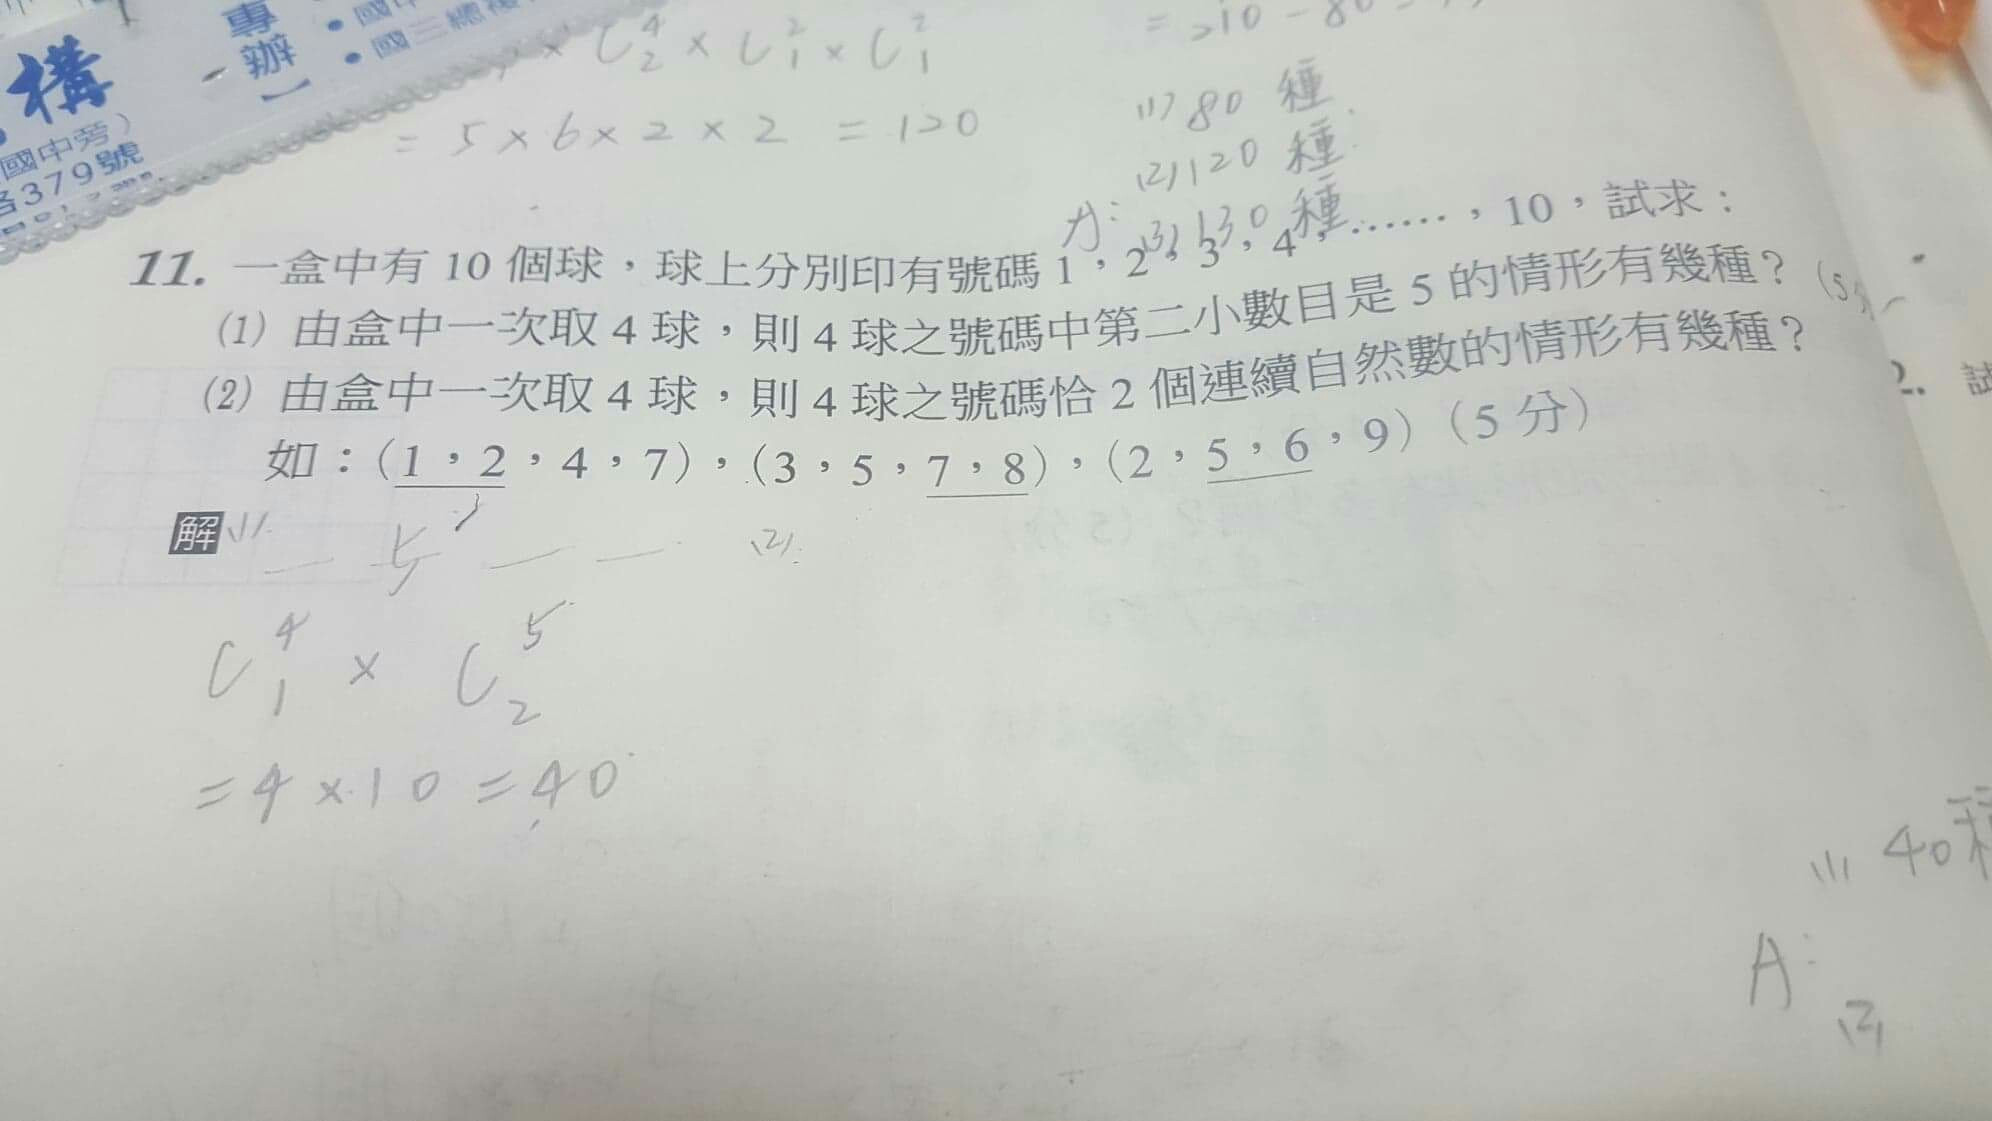 構
專
辦
】
國中旁）
379號
• 國三總複
× C⁴₂ × C²₁ × C²₁
= 5 × 6 × 2 × 2 = 120
= 210 - 80
(1) 80 種
(2) 120 種
A: (3) 130 種
11. 一盒中有 10 個球，球上分別印有號碼 1，2，3，4，……，10，試求：
(1) 由盒中一次取 4 球，則 4 球之號碼中第二小數目是 5 的情形有幾種？（5分
(2) 由盒中一次取 4 球，則 4 球之號碼恰 2 個連續自然數的情形有幾種？
如：（1，2，4，7），（3，5，7，8），（2，5，6，9）（5 分）
2. 試
解 (1) 5 (2)
C⁴₁ × C⁵₂
= 4 × 10 = 40
(1) 40種
A:
(2)